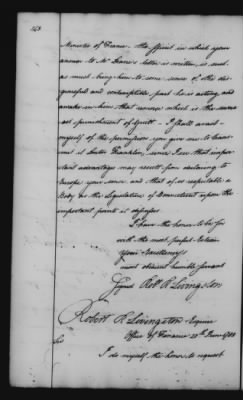 Minister of France – the spirit in which your
answer to Mr Deane's letter is written is such
as must bring him to some sense of the dis-
graceful and contemptible part he is acting, and
awake in him that remorse which is the surest
punishment of Guilt – I shall avail
myself of the permission you give me to trans-
mit it Doctor Franklin, since I see that impor-
tant advantages may result from declaring to
Europe your sense and that of so respectable a
Body as the Legislature of Connecticut upon the
important point it discusses
I have the honor to be Sir
with the most perfect Esteem
Your Excellency's
most obedient humble servant
Signed Robt R. Livingston
Robert R Livingston Esquire
Office of Finance June
Sir
I do myself the honor to request